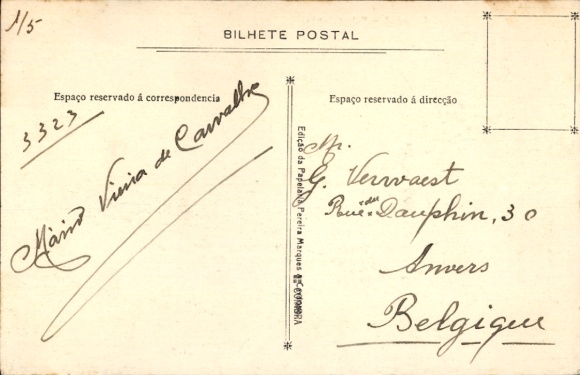 1/5
BILHETE POSTAL
Espaço reservado á correspondencia
Espaço reservado á direcção
3323
Mário Vieira de Carvalho
Edição da Papelaria Pereira Marques COIMBRA
Mr.
G. Verwaest
Rue du Dauphin, 30
Anvers
Belgique